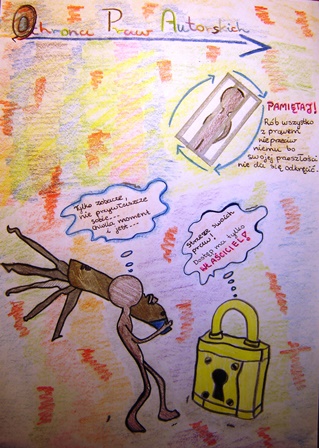 Ochrona Praw Autorskich
PAMIĘTAJ!
Rób wszystko
z prawem
nieprzeciw
niemu bo
swojej przeszłości
nie da się odkręcić.
Tylko zobaczę,
nie przywłaszczę
sobie...
chwila moment
i jest...
Strzeż swoich
praw!
Dostęp ma tylko
WŁAŚCICIEL!